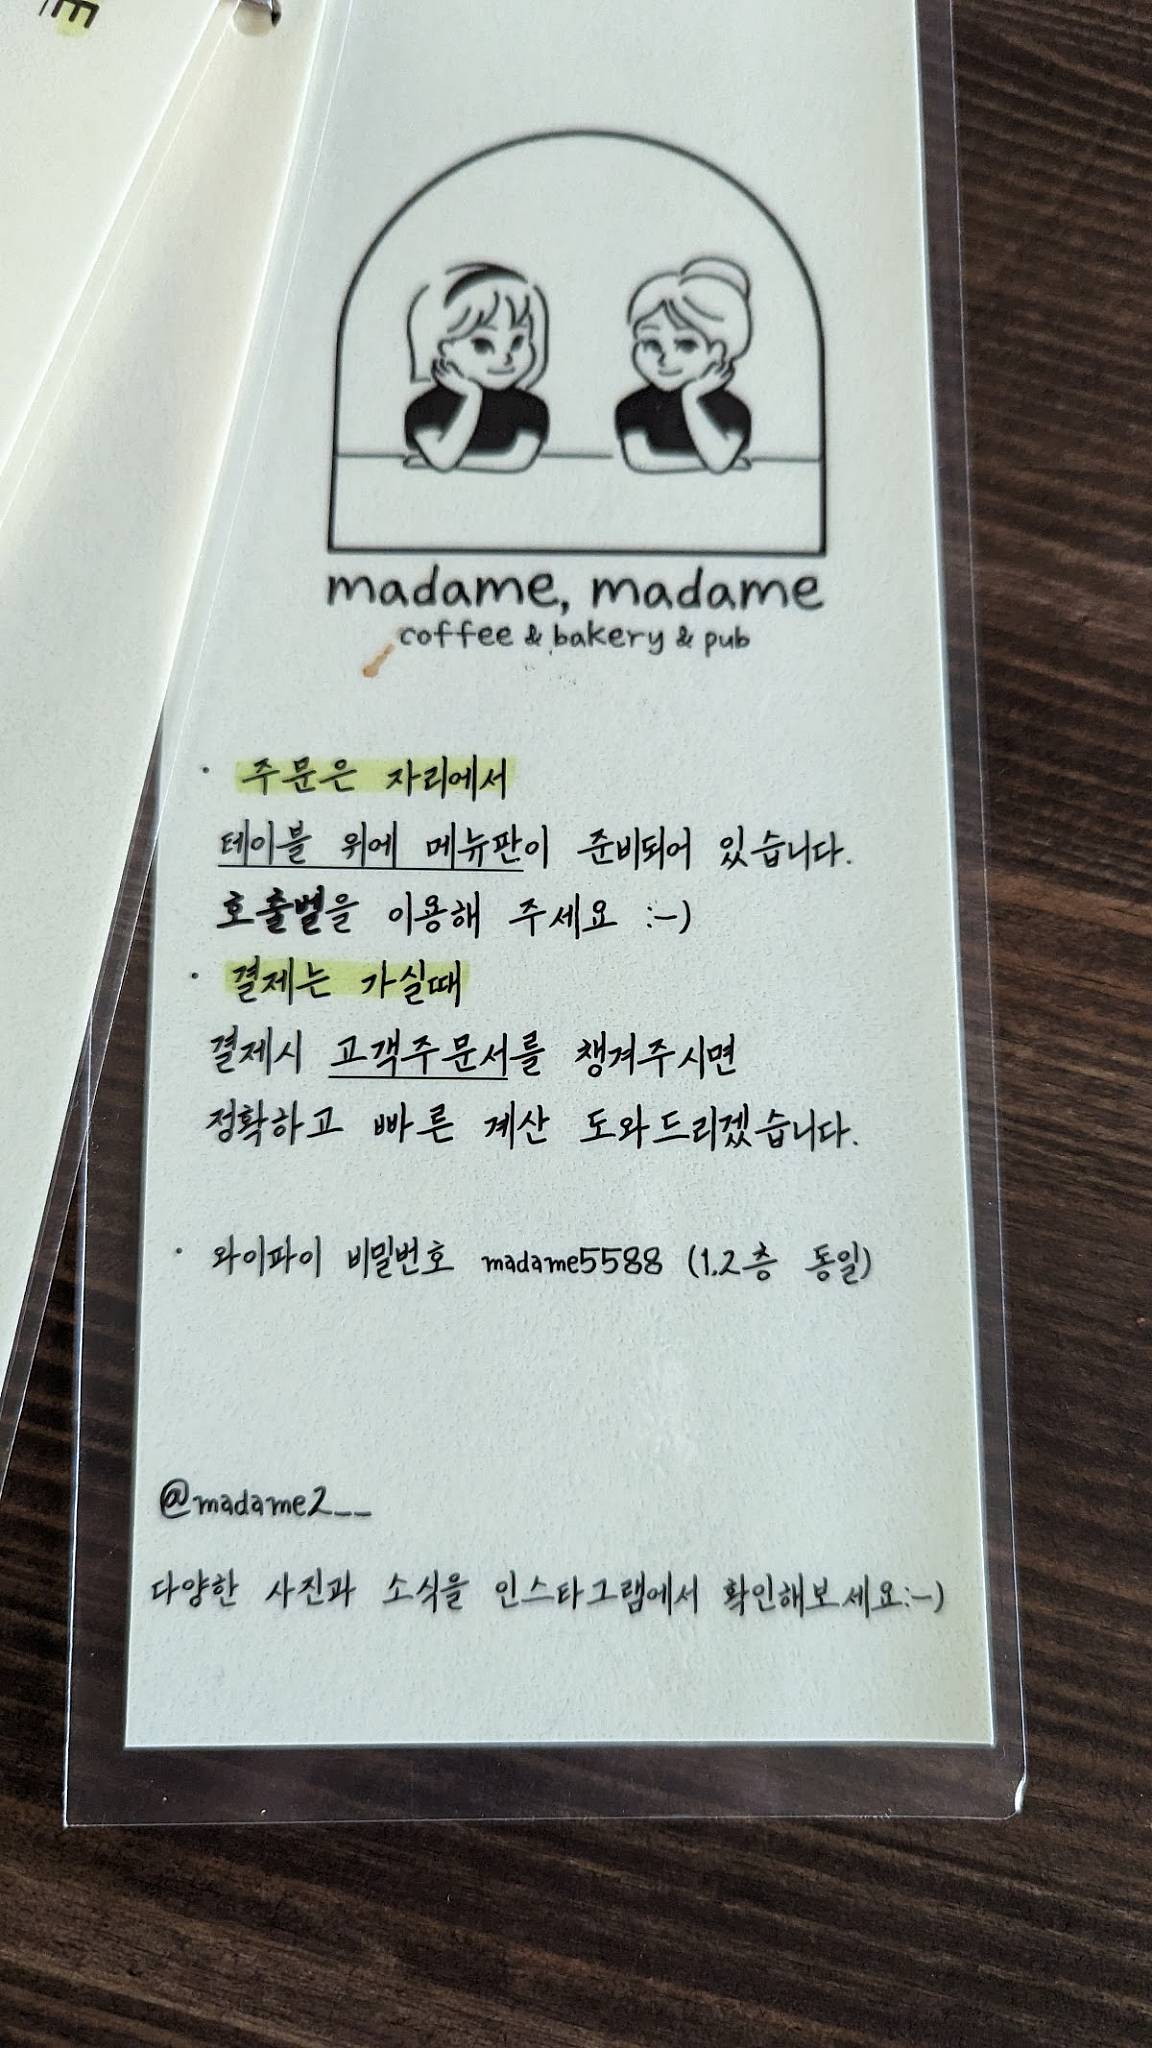 madame, madame
coffee & bakery & pub
· 주문은 자리에서
테이블 위에 메뉴판이 준비되어 있습니다.
호출벨을 이용해 주세요 :-)
· 결제는 가실때
결제시 고객주문서를 챙겨주시면
정확하고 빠른 계산 도와드리겠습니다.
· 와이파이 비밀번호 madame5588 (1.2층 동일)
@madame2__
다양한 사진과 소식을 인스타그램에서 확인해보세요:-)